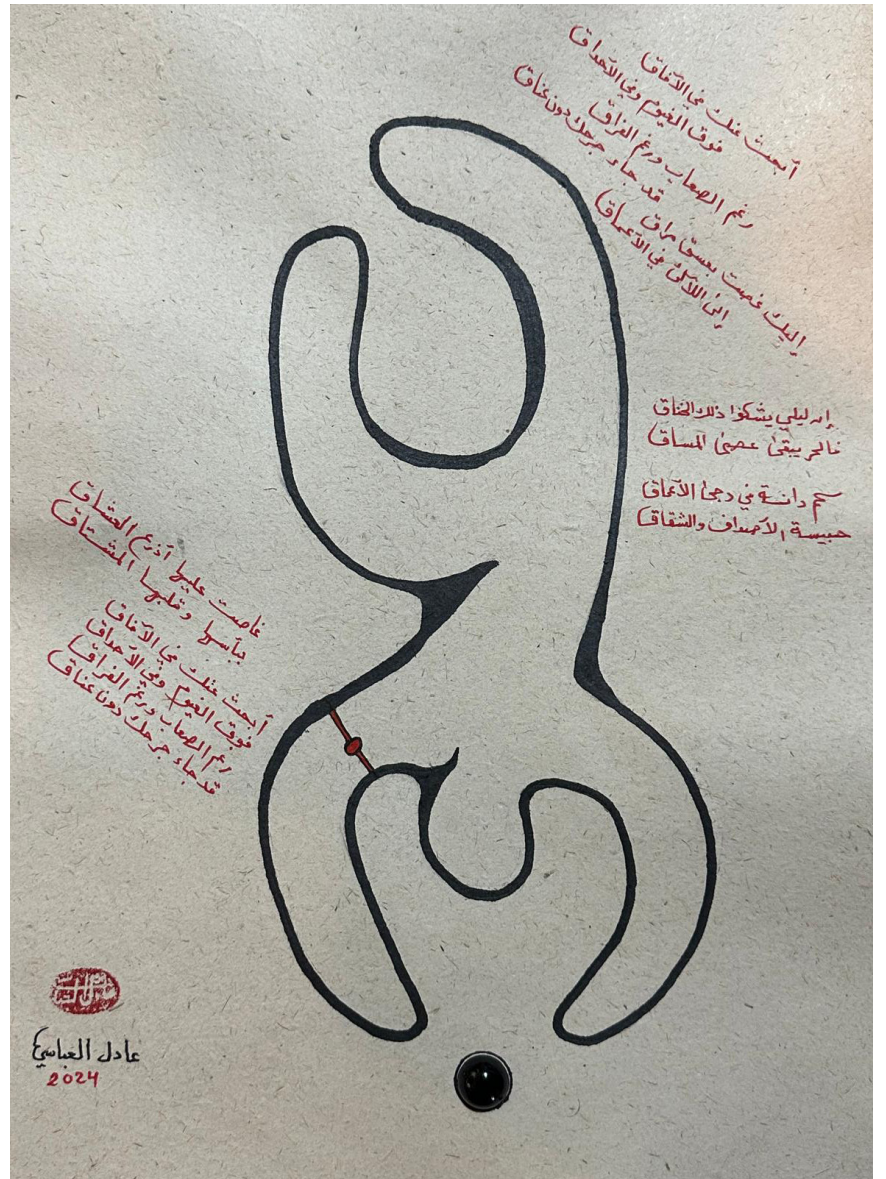 أبحث عنك في الآفاق
فوق الغيوم وفي الأحداق
رغم الصعاب ورغم الفراق
قد جاء جرحك دون عناق
إليك غصت بعسق مراق
إلى اللآلئ في الأعماق
إن ليلي يشكوا ذلك الخناق
فالحر يبقى عصيّ المساق
كم دانة في دجى الأعماق
حبيسة الأصداف والشقاق
غاصت عليها أذرع العشاق
بأسها وقلبها المشتاق
أبحث عنك في الآفاق
فوق الغيوم وفي الأحداق
رغم الصعاب ورغم الفراق
قد جاء جرحك دون عناق
عادل العباسي
2024